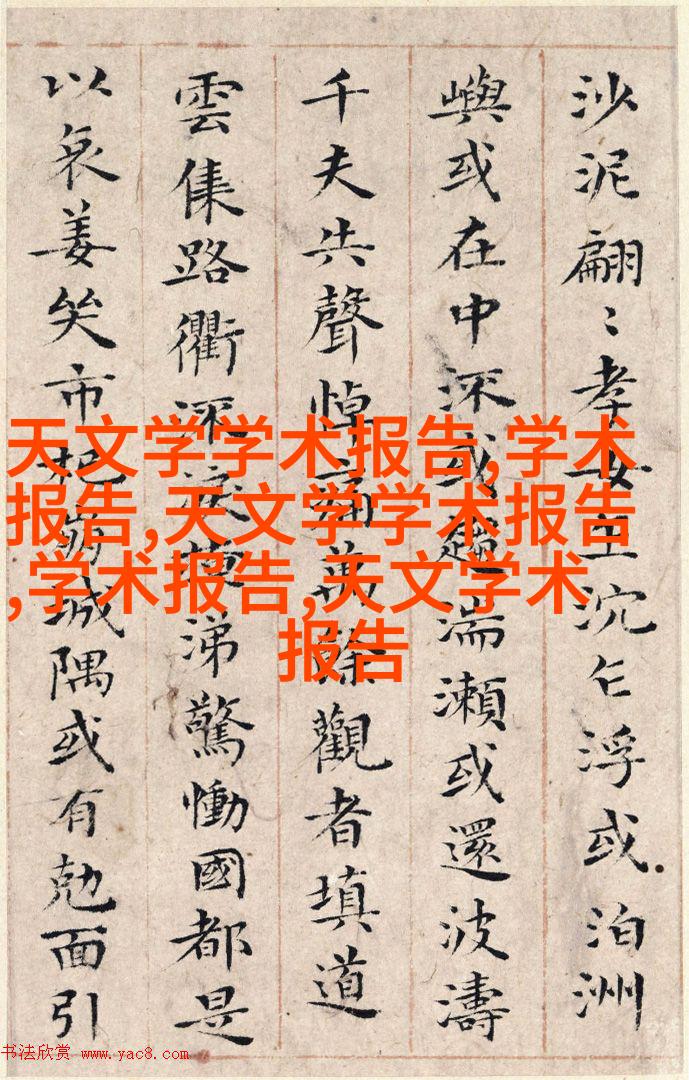 沙泥翩〻孝女沉乍浮或泊洲
嶼或在中流或趨湍瀨或還波濤
千夫共聲悼痛萬餘觀者填道
雲集路衢流淚掩涕驚慟國都是
以哀姜哭市杞崩城隅或有剋面引
天文学学术报告,学术
报告,天文学学术报告
,学术报告,天文学术
报告
书法欣赏 www.yac8.com